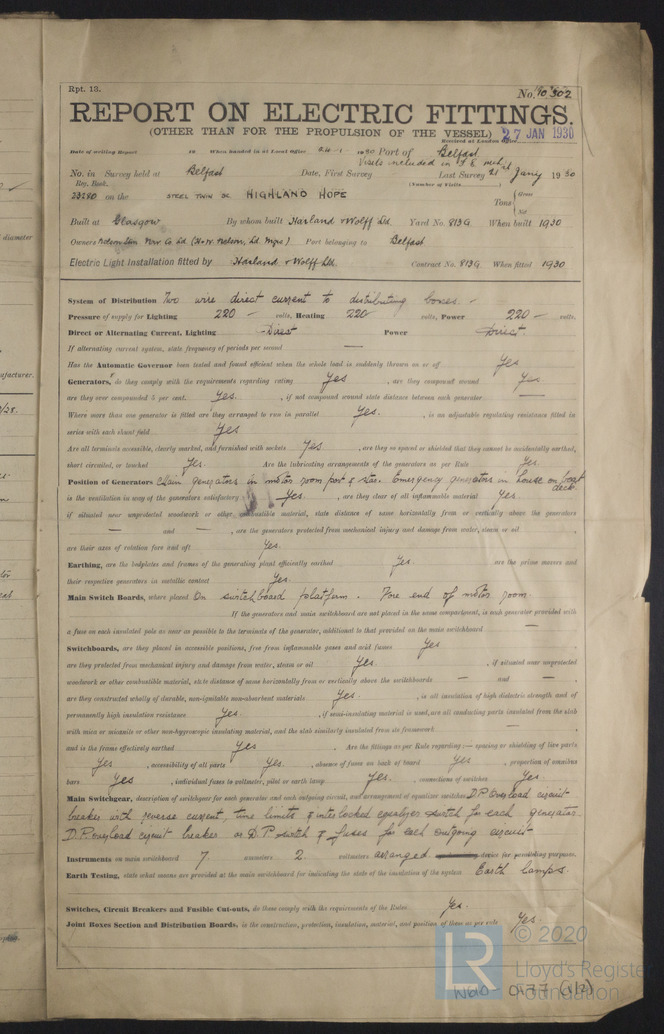 Rpt. 13.
No. 10302
REPORT ON ELECTRIC FITTINGS.
(OTHER THAN FOR THE PROPULSION OF THE VESSEL)
Received at London Office 27 JAN 1930
Date of writing Report 19 When handed in at Local Office 24-1-1930 Port of Belfast
Visits included in
No. in Survey held at Belfast Date, First Survey Last Survey 21st Jany 1930
Reg. Book. (Number of Visits
23280 on the STEEL TWIN SC HIGHLAND HOPE Tons { Gross
Net
Built at Glasgow By whom built Harland & Wolff Ld. Yard No. 813G When built 1930
Owners Nelson Stm Nav Co Ld (H. & W. Nelson, Ld. Mgrs) Port belonging to Belfast
Electric Light Installation fitted by Harland & Wolff Ld. Contract No. 813G When fitted 1930
System of Distribution Two wire direct current to distributing boxes. -
Pressure of supply for Lighting 220 - volts, Heating 220 volts, Power 220 - volts.
Direct or Alternating Current, Lighting Direct Power Direct.
If alternating current system, state frequency of periods per second —
Has the Automatic Governor been tested and found efficient when the whole load is suddenly thrown on or off Yes
Generators, do they comply with the requirements regarding rating Yes , are they compound wound Yes
are they over compounded 5 per cent. Yes. , if not compound wound state distance between each generator —
Where more than one generator is fitted are they arranged to run in parallel Yes. , is an adjustable regulating resistance fitted in
series with each shunt field Yes
Are all terminals accessible, clearly marked, and furnished with sockets Yes , are they so spaced or shielded that they cannot be accidentally earthed,
short circuited, or touched Yes. Are the lubricating arrangements of the generators as per Rule Yes.
Position of Generators Main generators in motor room port & star. Emergency generators in house on boat deck.
is the ventilation in way of the generators satisfactory Yes. , are they clear of all inflammable material Yes.
if situated near unprotected woodwork or other combustible material, state distance of same horizontally from or vertically above the generators
— and — , are the generators protected from mechanical injury and damage from water, steam or oil ,
are their axes of rotation fore and aft Yes.
Earthing, are the bedplates and frames of the generating plant efficiently earthed Yes. are the prime movers and
their respective generators in metallic contact Yes.
Main Switch Boards, where placed On switchboard platform. Fore end of motor room.
If the generators and main switchboard are not placed in the same compartment, is each generator provided with
a fuse on each insulated pole as near as possible to the terminals of the generator, additional to that provided on the main switchboard —
Switchboards, are they placed in accessible positions, free from inflammable gases and acid fumes Yes ,
are they protected from mechanical injury and damage from water, steam or oil Yes. , if situated near unprotected
woodwork or other combustible material, state distance of same horizontally from or vertically above the switchboards — and — ,
are they constructed wholly of durable, non-ignitable non-absorbent materials Yes. , is all insulation of high dielectric strength and of
permanently high insulation resistance Yes. , if semi-insulating material is used, are all conducting parts insulated from the slab
with mica or micanite or other non-hygroscopic insulating material, and the slab similarly insulated from its framework — ,
and is the frame effectively earthed Yes . Are the fittings as per Rule regarding:— spacing or shielding of live parts
Yes , accessibility of all parts Yes , absence of fuses on back of board Yes , proportion of omnibus
bars Yes , individual fuses to voltmeter, pilot or earth lamp Yes. , connections of switches Yes
Main Switchgear, description of switchgear for each generator and each outgoing circuit, and arrangement of equaliser switches D.P. Overload circuit
breaker with reverse current, time limits & interlocked equaliser switch for each generator
D.P. overload circuit breaker or D.P. switch & fuses for each outgoing circuit
Instruments on main switchboard 7. ammeters 2. voltmeters arranged device for paralleling purposes.
Earth Testing, state what means are provided at the main switchboard for indicating the state of the insulation of the system Earth lamps.
Switches, Circuit Breakers and Fusible Cut-outs, do these comply with the requirements of the Rules Yes.
Joint Boxes Section and Distribution Boards, is the construction, protection, insulation, material, and position of these as per rule Yes.
© 2020
Lloyd's Register
Foundation
W610-0177 (1/2)